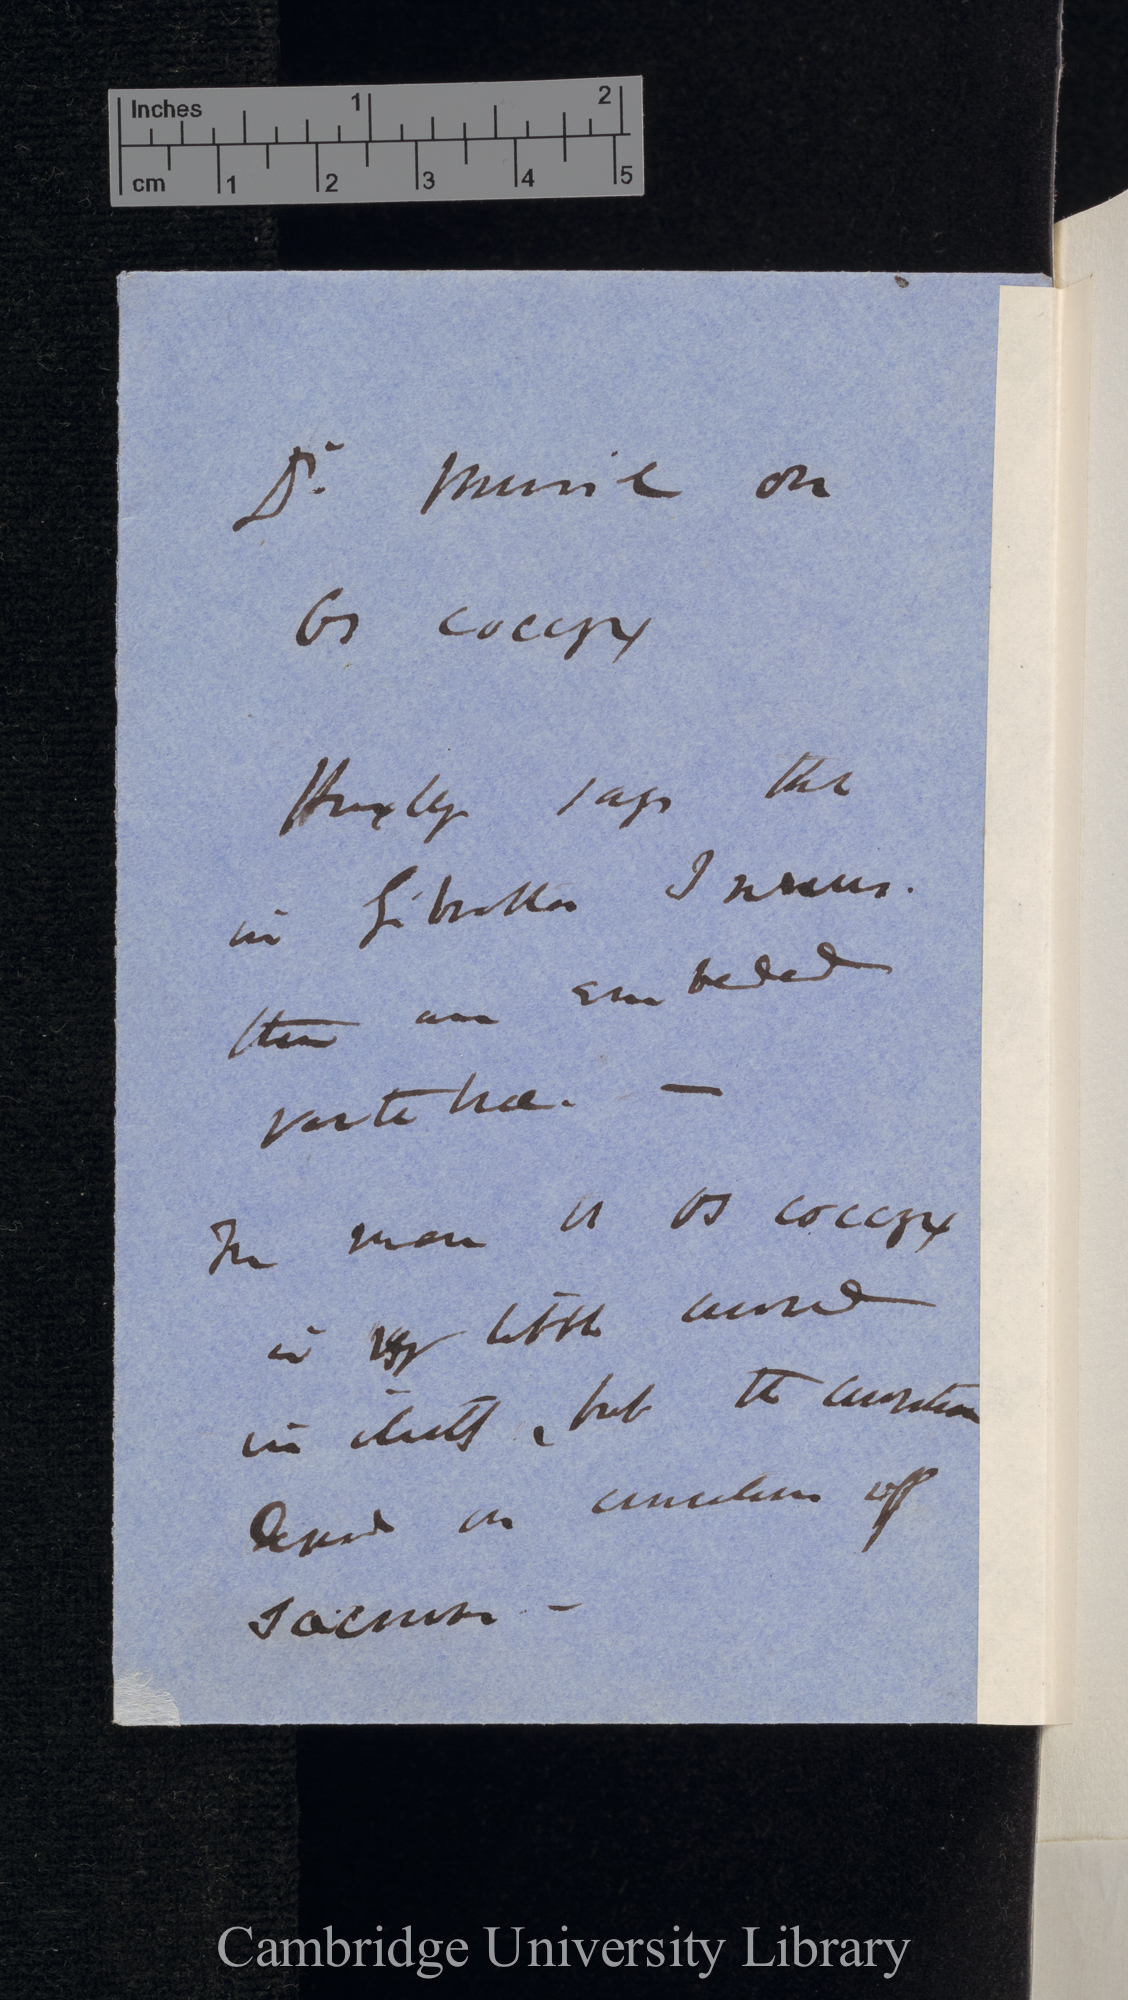 Inches 1 2
cm 1 2 3 4 5
Dr. Murie on
Os coccyx
Huxley says that
in Gibraltar Inuus.
there are embedded
vertebrae. —
In man is os coccyx
is very little curved
in itself, but the curvature
depend on curvature of
sacrum —
Cambridge University Library